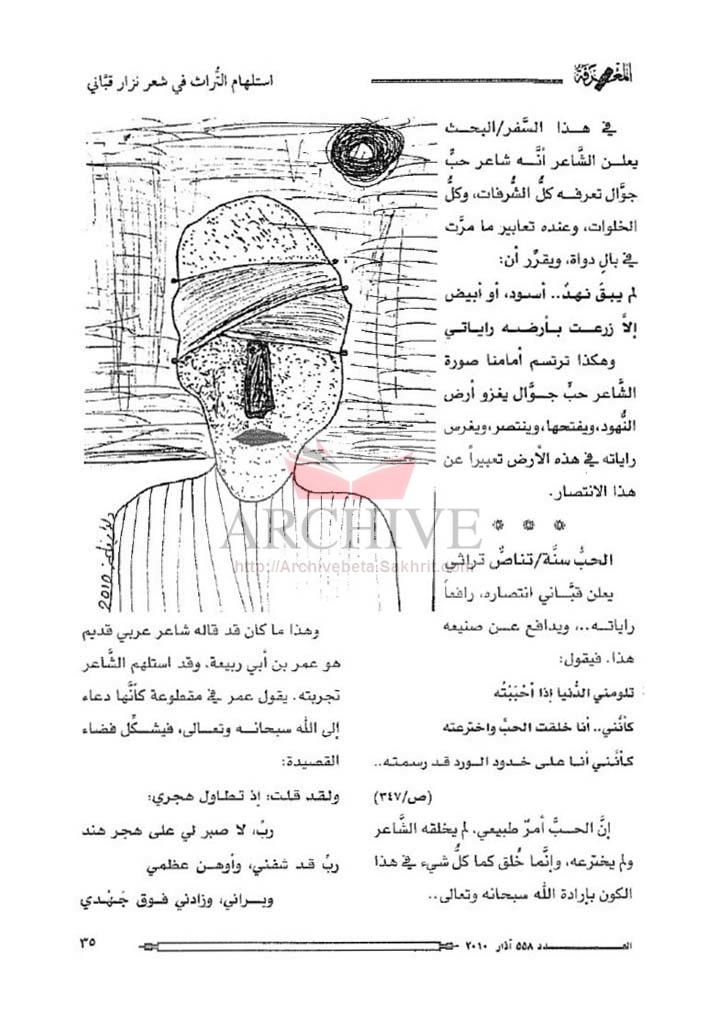 المعرفة
استلهام التُّراث في شعر نزار قبَّاني
في هذا السَّفر/البحث
يعلن الشَّاعر أنَّه شاعر حبٍّ
جوَّال تعرفه كلُّ الشُّرفات، وكلُّ
الخلوات، وعنده تعابير ما مرَّت
في بالِ دواة، ويقرِّر أن:
لم يبقَ نهدٌ.. أسود، أو أبيض
إلاَّ زرعت بأرضه راياتي
وهكذا ترتسم أمامنا صورة
الشَّاعر حبٍّ جوَّال يغزو أرض
النُّهود،ويفتحها،وينتصر،ويغرس
راياته في هذه الأرض تعبيراً عن
هذا الانتصار.
الحبُّ سنَّة/تناصٌّ تراثي
يعلن قبَّاني انتصاره، رافعاً
راياته..، ويدافع عن صنيعه
هذا. فيقول:
تلومني الدُّنيا إذا أحْبَبْتُه
كأنَّني.. أنا خلقت الحبَّ واخترعته
كأنَّني أنا على خدود الورد قد رسمته..
(ص/٣٤٧)
إنَّ الحبَّ أمرٌ طبيعي، لم يخلقه الشَّاعر
ولم يخترعه، وإنَّما خُلق كما كلُّ شيء في هذا
الكون بإرادة الله سبحانه وتعالى..
2010
ARCHIVE
http://Archivebeta.Sakhrit.com
وهذا ما كان قد قاله شاعر عربي قديم
هو عمر بن أبي ربيعة، وقد استلهم الشَّاعر
تجربته. يقول عمر في مقطوعة كأنَّها دعاء
إلى الله سبحانه وتعالى، فيشكِّل فضاء
القصيدة:
ولقد قلت: إذ تطاول هجري:
ربِّ، لا صبر لي على هجر هند
ربِّ قد شفني، وأوهن عظمي
وبراني، وزادني فوق جَهْدي
العدد ٥٥٨ آذار ٢٠١٠
٣٥